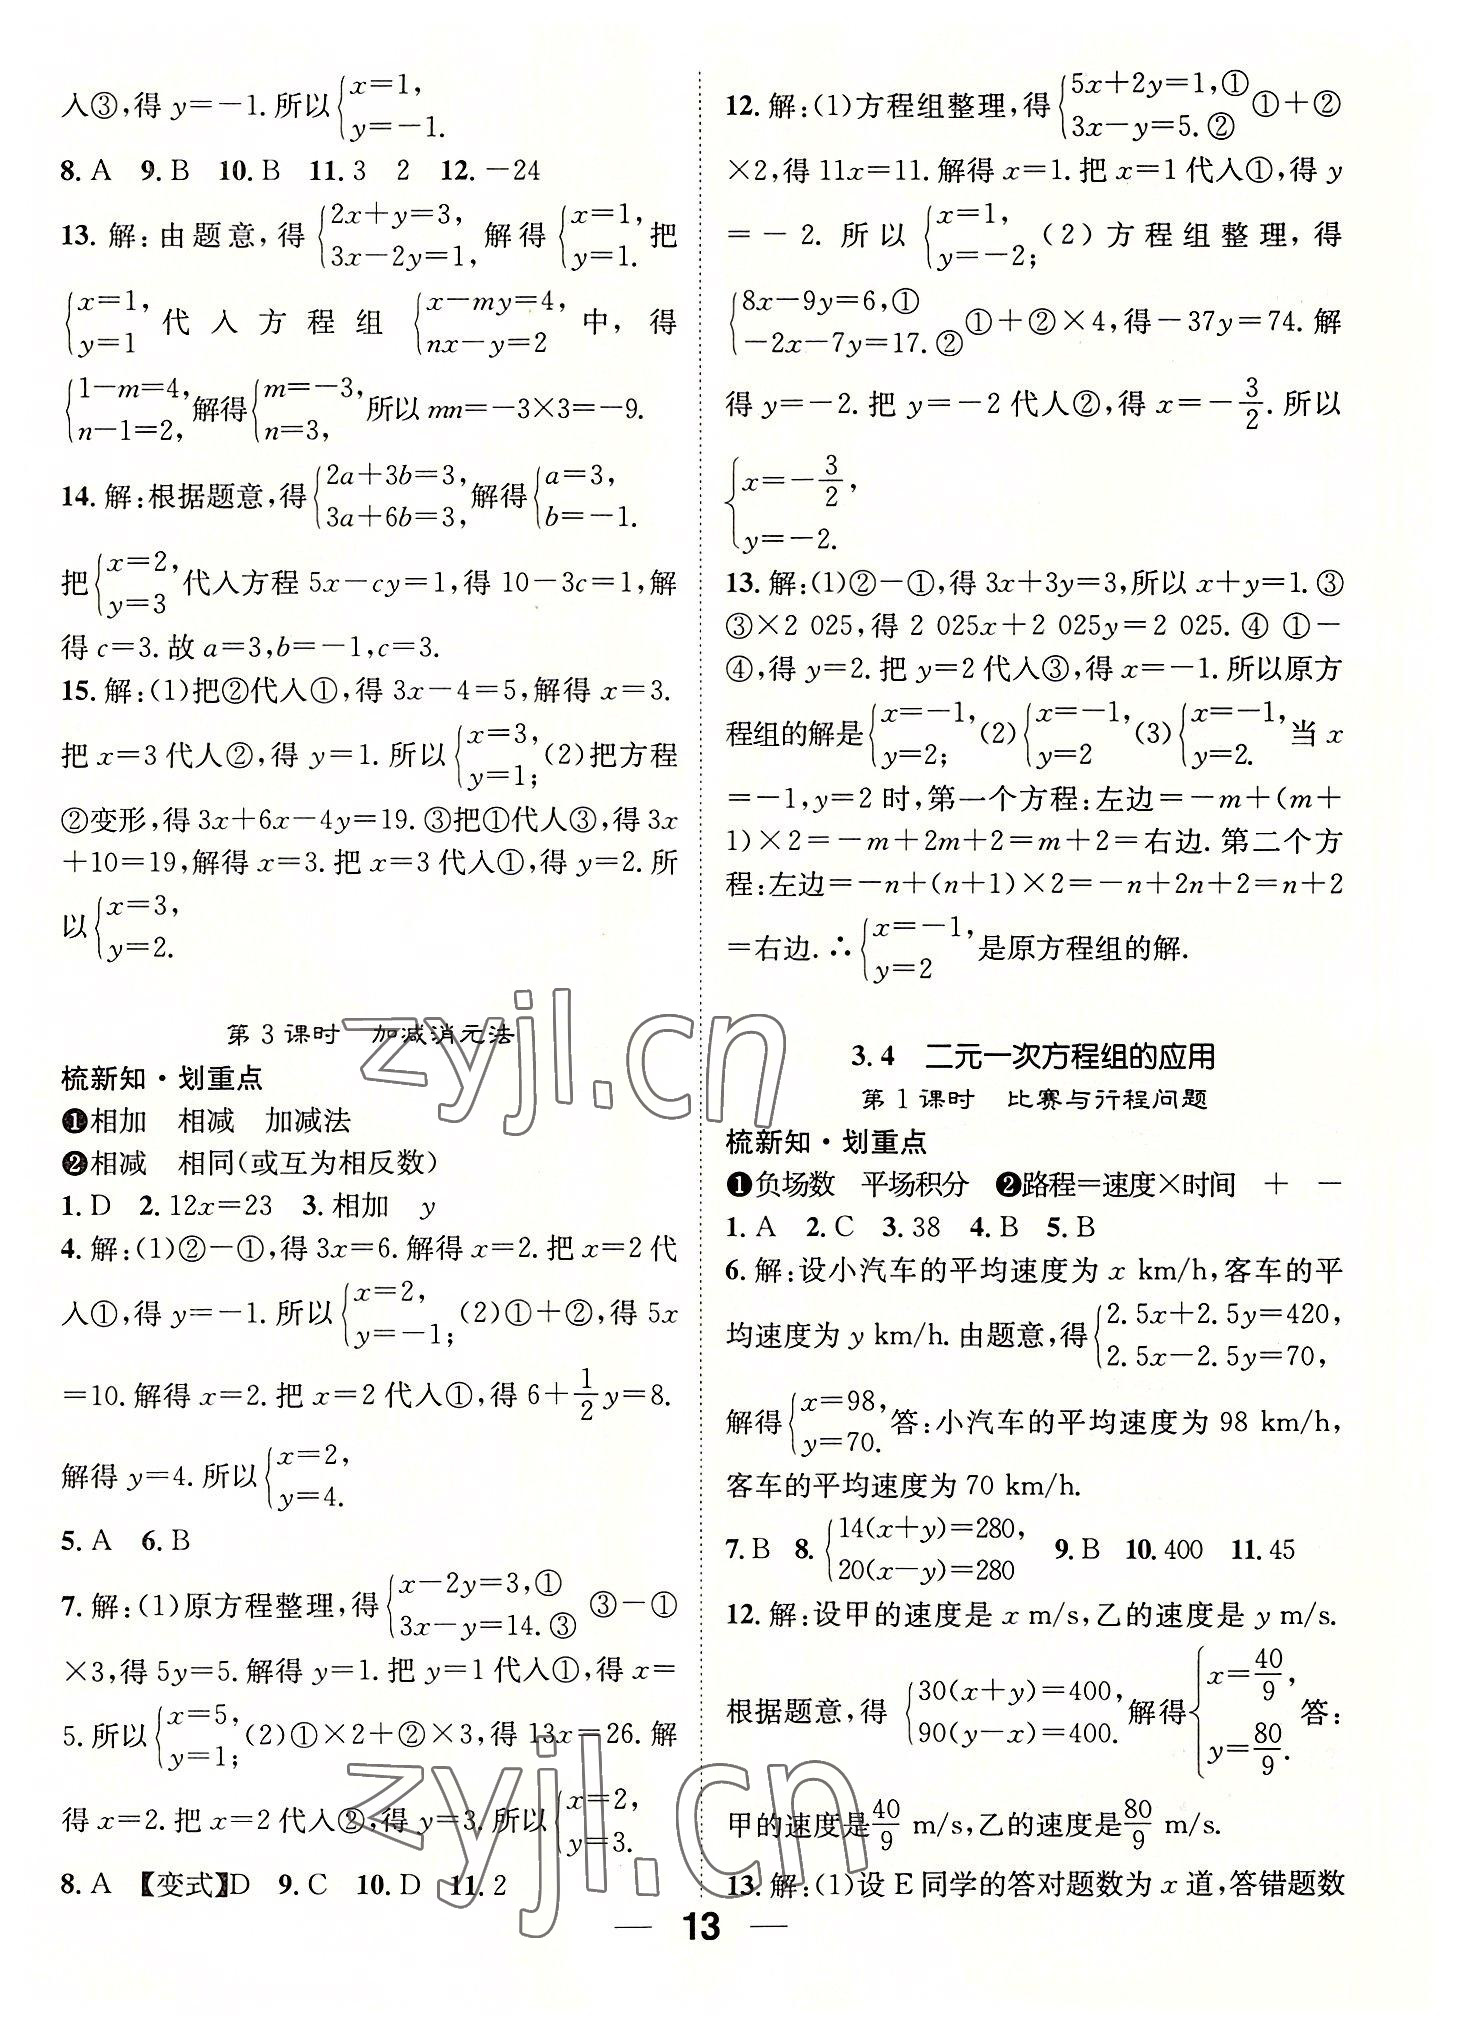 入③,得 y=-1.所以{x=1,
y=-1.
8. A 9. B 10. B 11. 3 2 12. -24
13. 解:由题意,得{2x+y=3, 3x-2y=1,解得{x=1, y=1.把
{x=1, y=1代入方程组{x-my=4, nx-y=2中,得
{1-m=4, n-1=2,解得{m=-3, n=3,所以 mn=-3×3=-9.
14. 解:根据题意,得{2a+3b=3, 3a+6b=3,解得{a=3, b=-1.
把{x=2, y=3代入方程 5x-cy=1,得 10-3c=1,解
得 c=3.故 a=3,b=-1,c=3.
15. 解:(1)把②代入①,得 3x-4=5,解得 x=3.
把 x=3 代入②,得 y=1.所以{x=3, y=1;(2)把方程
②变形,得 3x+6x-4y=19.③把①代入③,得 3x
+10=19,解得 x=3.把 x=3 代入①,得 y=2.所
以{x=3, y=2.
第 3 课时 加减消元法
梳新知·划重点
❶相加 相减 加减法
❷相减 相同(或互为相反数)
1. D 2. 12x=23 3. 相加 y
4. 解:(1)②-①,得 3x=6.解得 x=2.把 x=2 代
入①,得 y=-1.所以{x=2, y=-1;(2)①+②,得 5x
=10.解得 x=2.把 x=2 代入①,得 6+1/2y=8.
解得 y=4.所以{x=2, y=4.
5. A 6. B
7. 解:(1)原方程整理,得{x-2y=3,① 3x-y=14.③ ③-①
×3,得 5y=5.解得 y=1.把 y=1 代入①,得 x=
5.所以{x=5, y=1;(2)①×2+②×3,得 13x=26.解
得 x=2.把 x=2 代入②,得 y=3.所以{x=2, y=3.
8. A 【变式】D 9. C 10. D 11. 2
12. 解:(1)方程组整理,得{5x+2y=1,① 3x-y=5.② ①+②
×2,得 11x=11.解得 x=1.把 x=1 代入①,得 y
=-2.所以{x=1, y=-2;(2)方程组整理,得
{8x-9y=6,① -2x-7y=17.② ①+②×4,得-37y=74.解
得 y=-2.把 y=-2 代入②,得 x=-3/2.所以
{x=-3/2,
y=-2.
13. 解:(1)②-①,得 3x+3y=3,所以 x+y=1.③
③×2 025,得 2 025x+2 025y=2 025.④ ①-
④,得 y=2.把 y=2 代入③,得 x=-1.所以原方
程组的解是{x=-1, y=2;(2){x=-1, y=2(3){x=-1, y=2.当 x
=-1,y=2 时,第一个方程:左边=-m+(m+
1)×2=-m+2m+2=m+2=右边.第二个方
程:左边=-n+(n+1)×2=-n+2n+2=n+2
=右边.∴{x=-1, y=2是原方程组的解.
3.4 二元一次方程组的应用
第 1 课时 比赛与行程问题
梳新知·划重点
❶负场数 平场积分 ❷路程=速度×时间 + -
1. A 2. C 3. 38 4. B 5. B
6. 解:设小汽车的平均速度为 x km/h,客车的平
均速度为 y km/h.由题意,得{2.5x+2.5y=420, 2.5x-2.5y=70,
解得{x=98, y=70.答:小汽车的平均速度为 98 km/h,
客车的平均速度为 70 km/h.
7. B 8. {14(x+y)=280, 20(x-y)=280 9. B 10. 400 11. 45
12. 解:设甲的速度是 x m/s,乙的速度是 y m/s.
根据题意,得{30(x+y)=400, 90(y-x)=400.解得{x=40/9, y=80/9.答:
甲的速度是40/9 m/s,乙的速度是80/9 m/s.
13. 解:(1)设 E 同学的答对题数为 x 道,答错题数
— 13 —
zyjl.cn
zyjl.cn